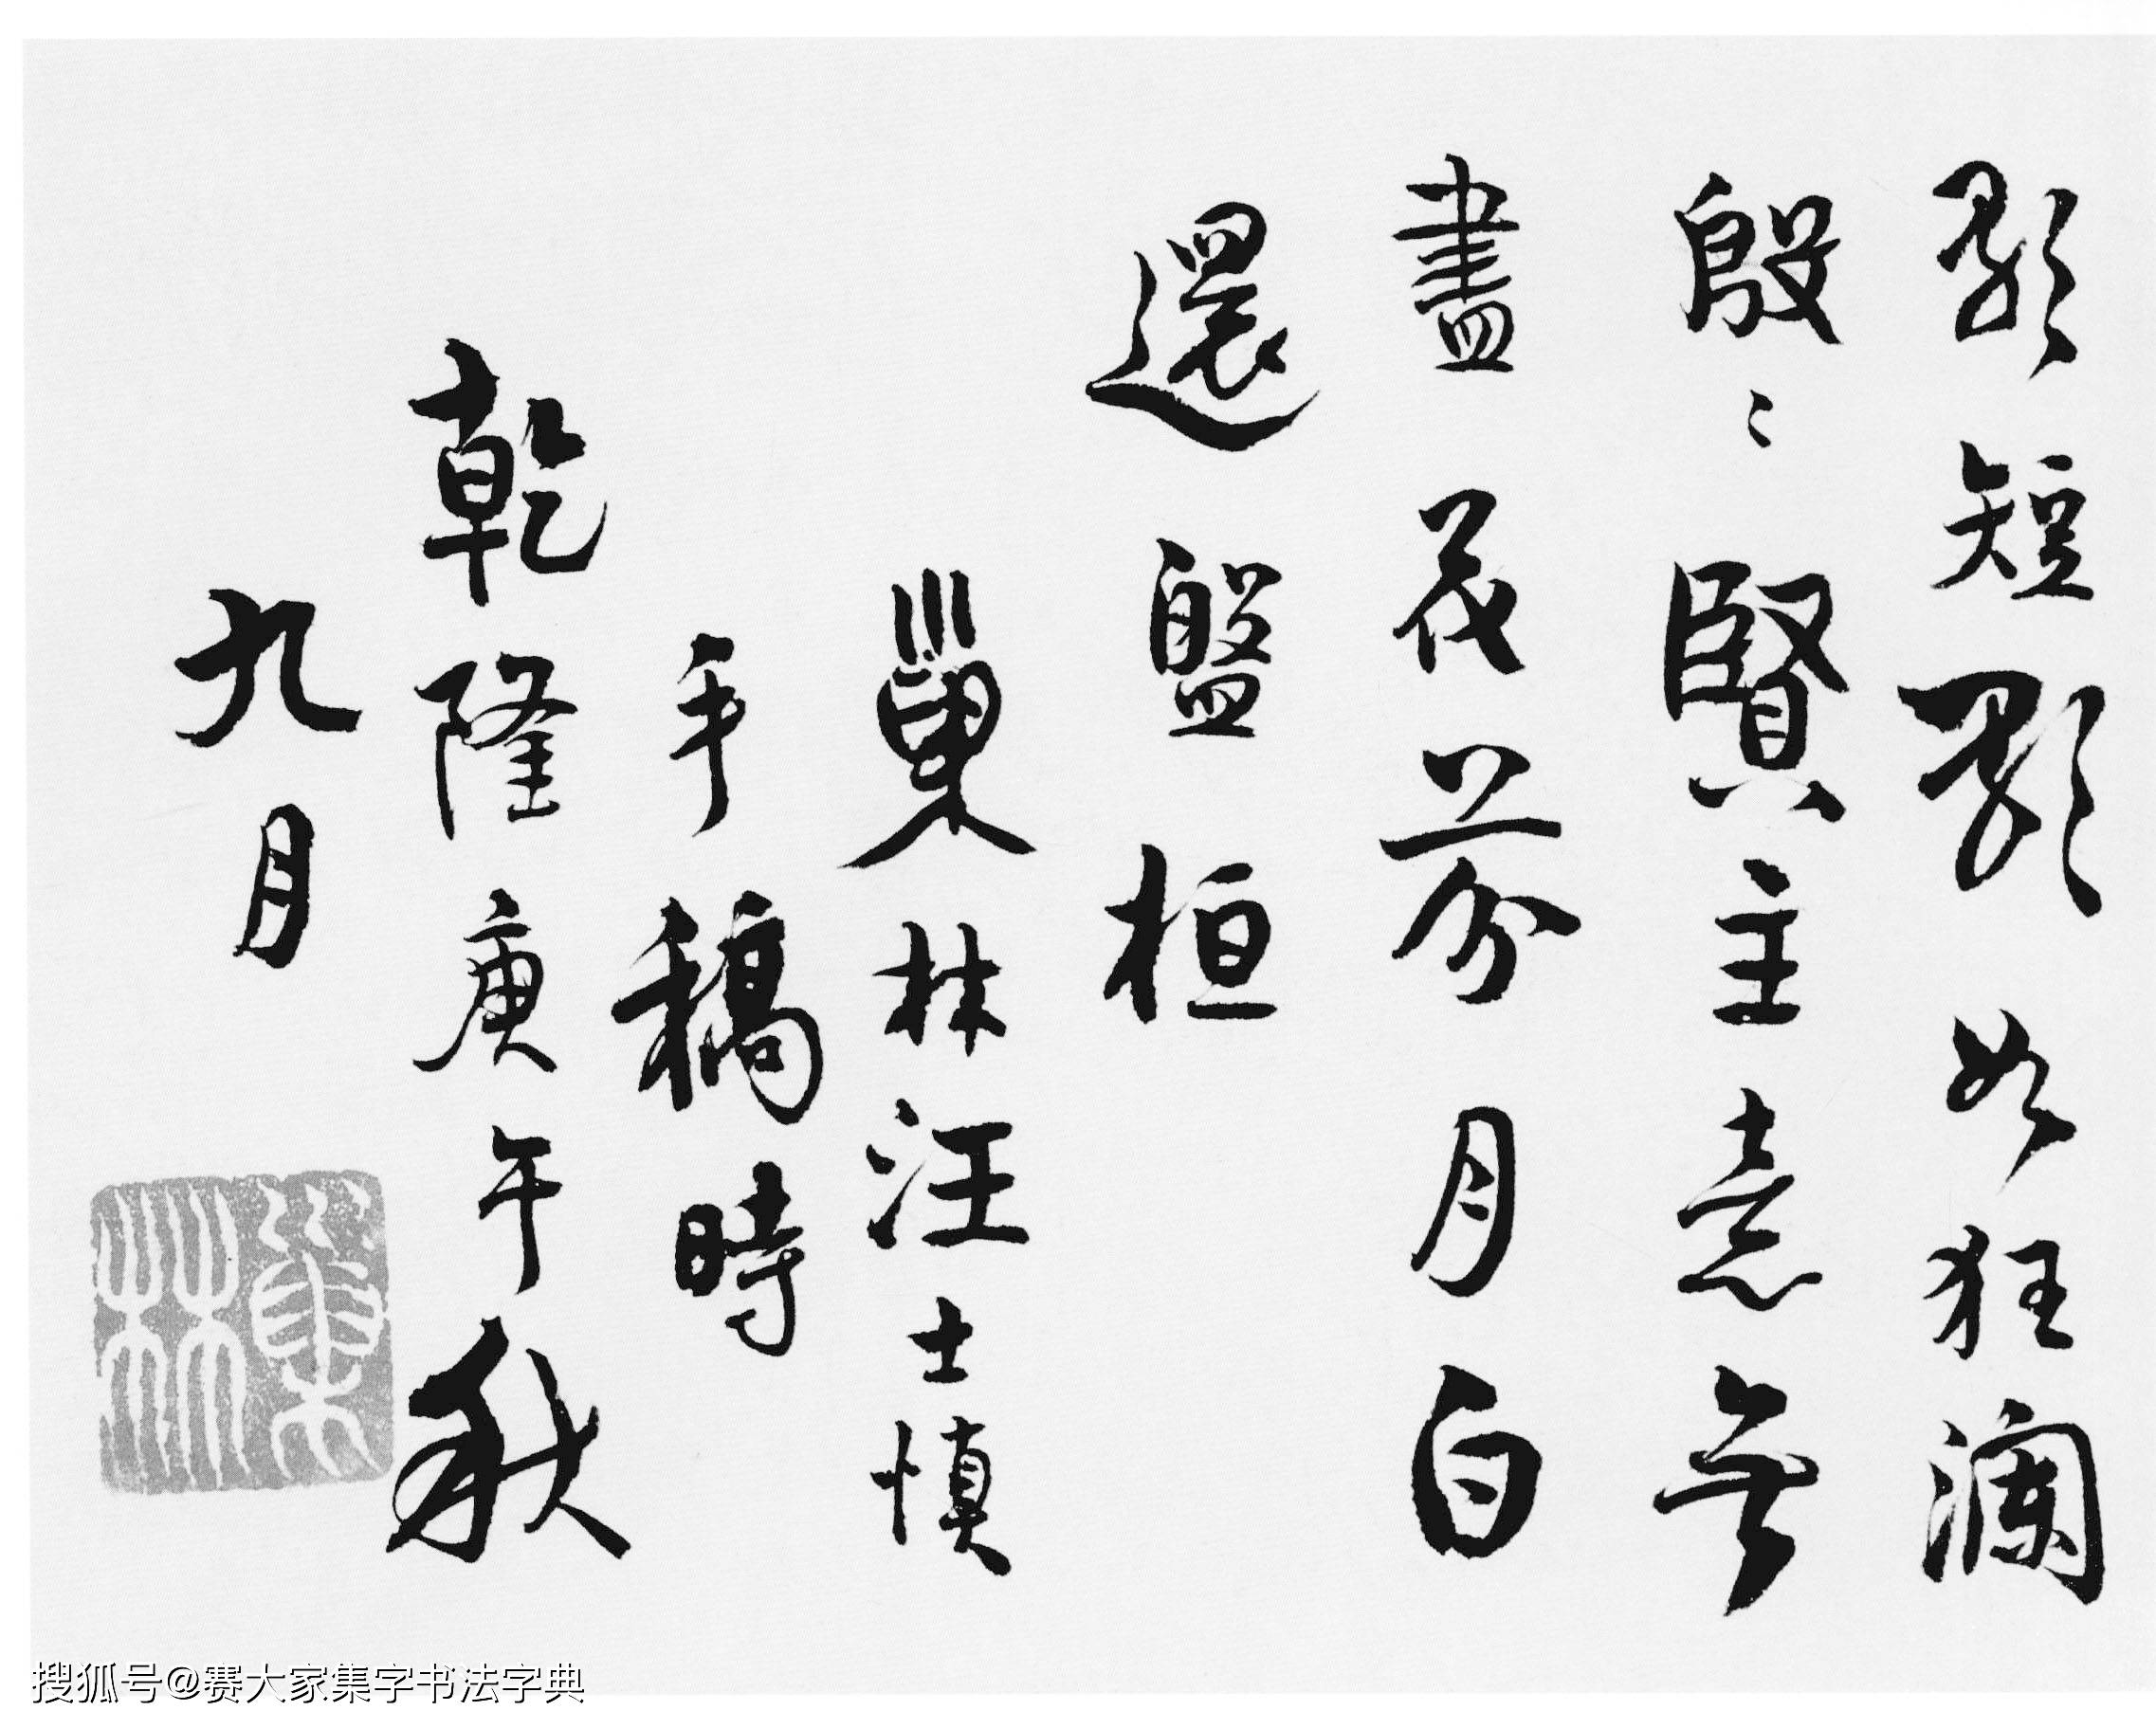 歌短歌如狂瀾
殷〻賢主意無
盡芬月白
還盤桓
巢林汪士慎
手稿時
乾隆庚午秋
九月
巢林
搜狐号@赛大家集字书法字典